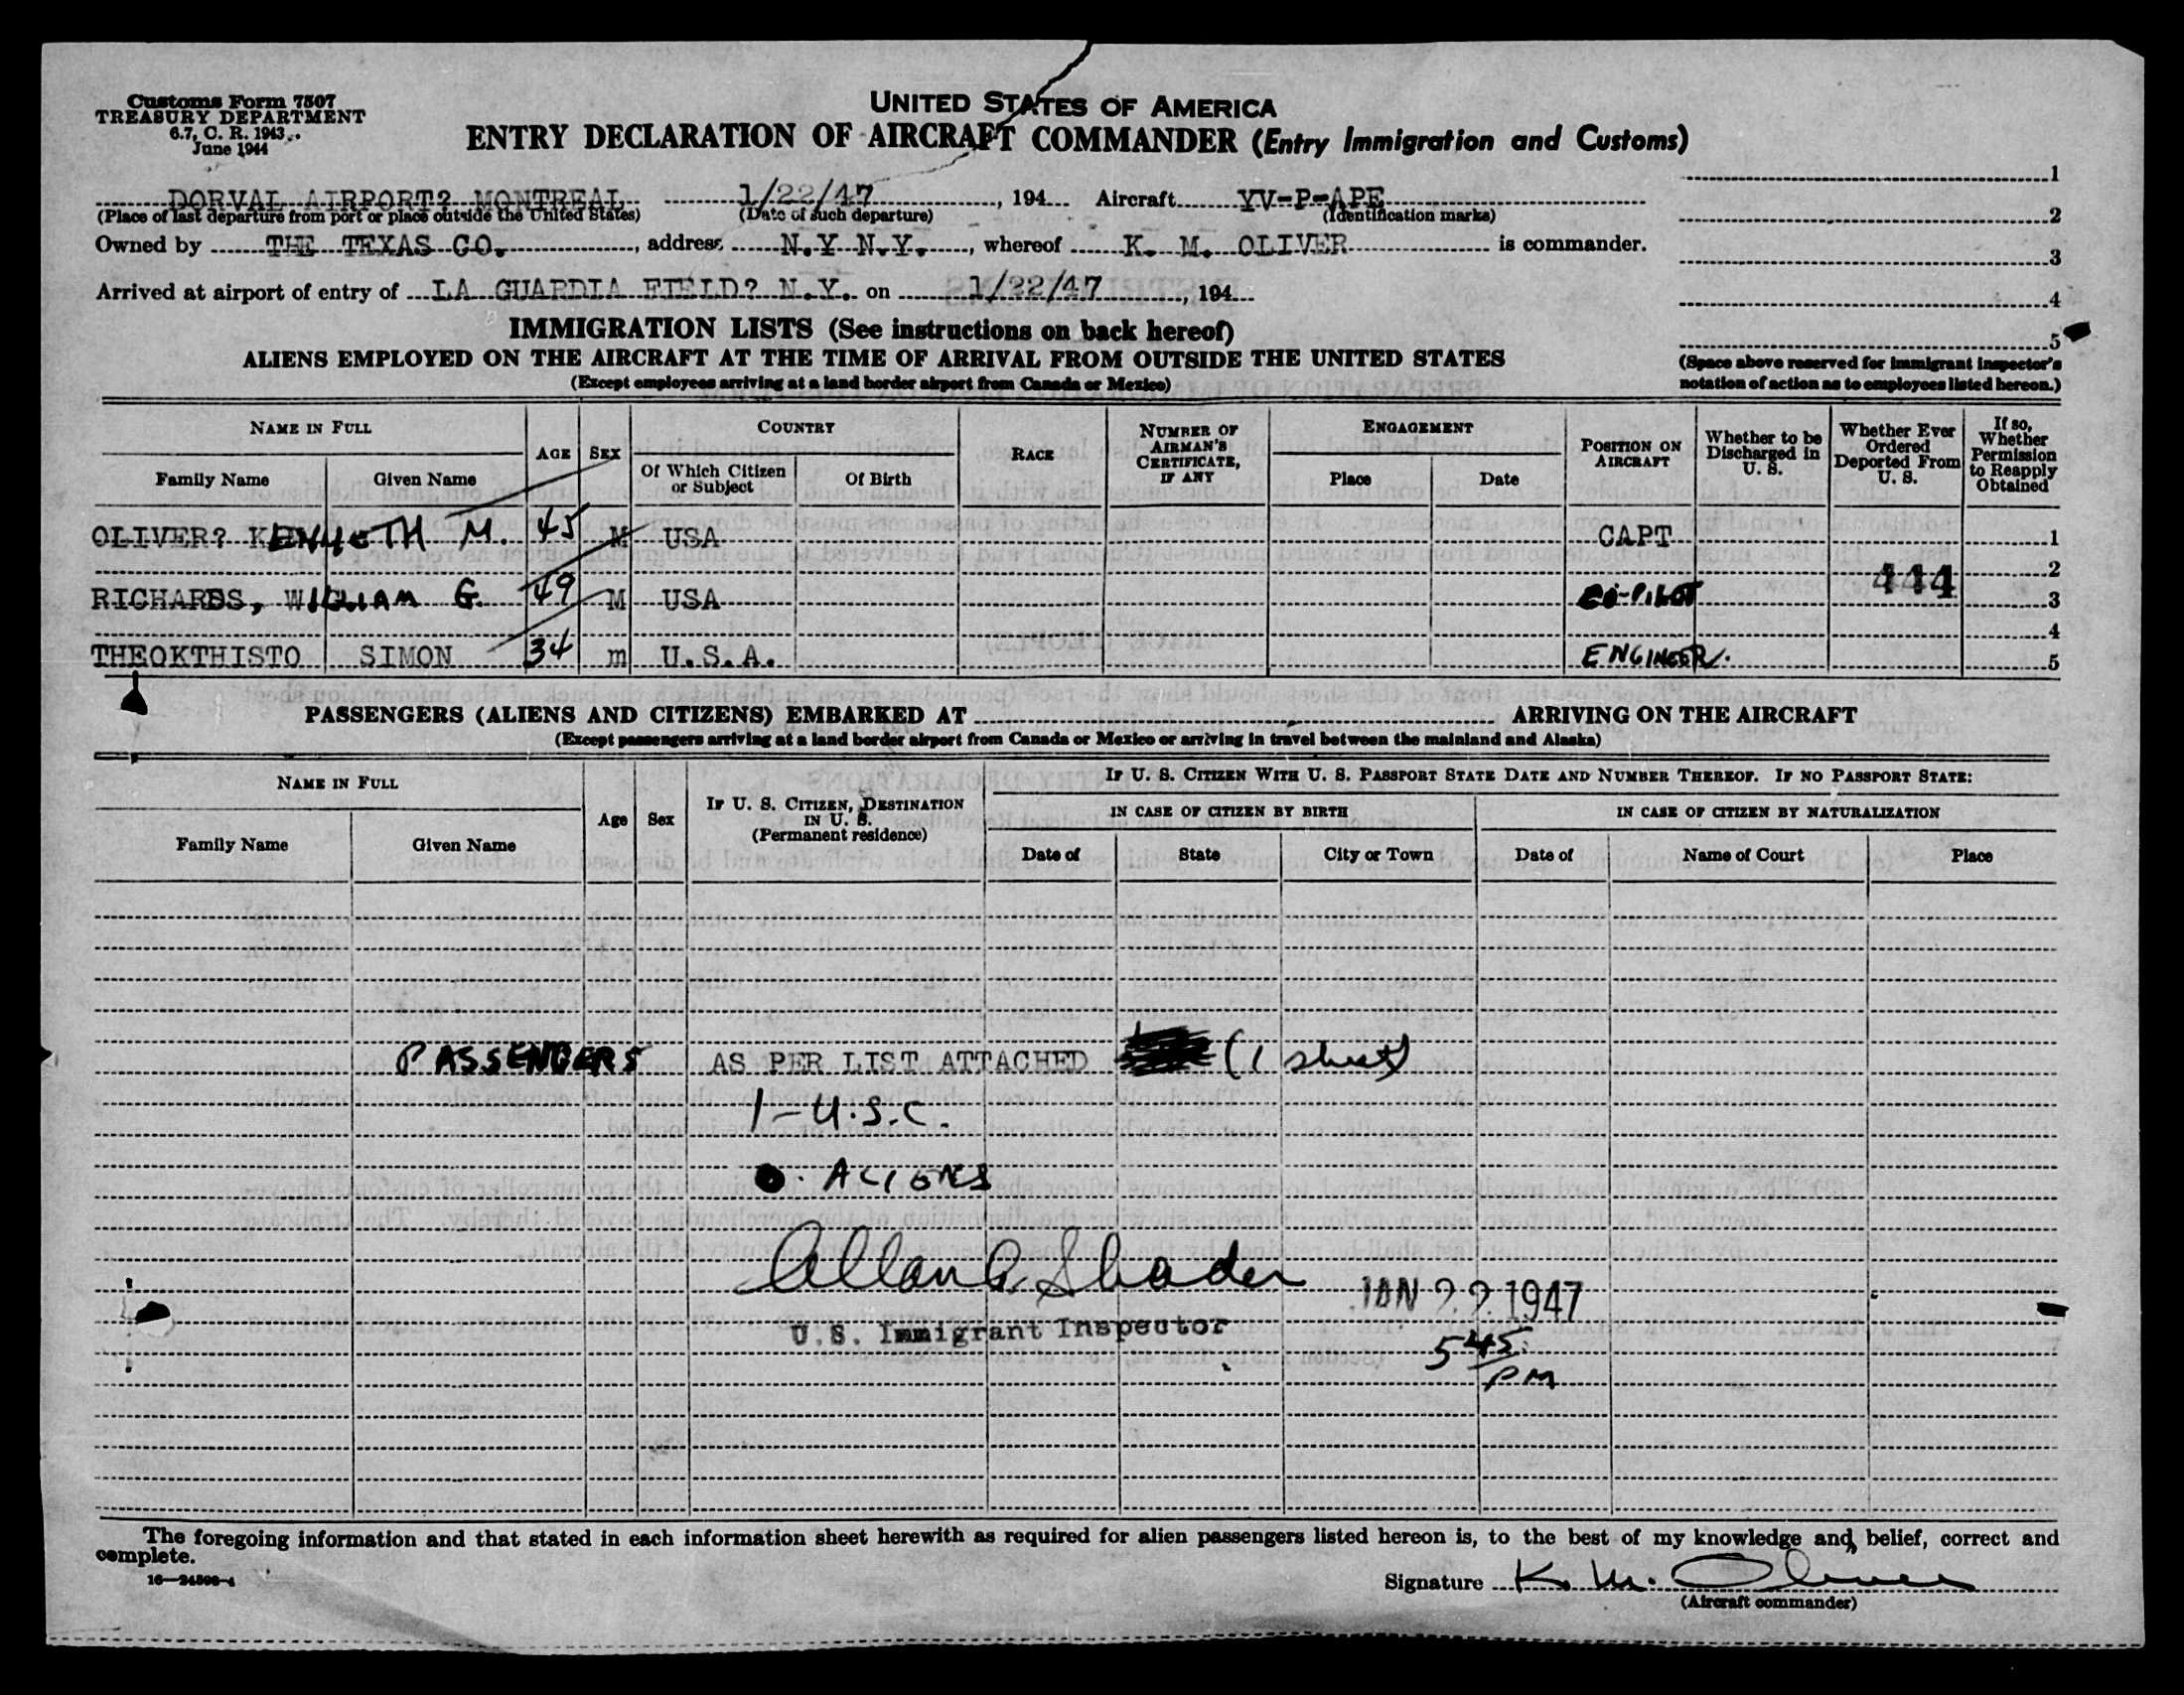 Customs Form 7507
TREASURY DEPARTMENT
6.7, C. R. 1943
June 1944
UNITED STATES OF AMERICA
ENTRY DECLARATION OF AIRCRAFT COMMANDER (Entry Immigration and Customs)
DORVAL AIRPORT? MONTREAL 1/22/47, 194 Aircraft YV-P-APE
(Place of last departure from port or place outside the United States) (Date of such departure) (Identification marks)
Owned by THE TEXAS CO., address N.Y N.Y., whereof K. M. OLIVER is commander.
Arrived at airport of entry of LA GUARDIA FIELD? N.Y. on 1/22/47, 194
1
2
3
4
5
(Space above reserved for immigrant inspector's
notation of action as to employees listed hereon.)
IMMIGRATION LISTS (See instructions on back hereof)
ALIENS EMPLOYED ON THE AIRCRAFT AT THE TIME OF ARRIVAL FROM OUTSIDE THE UNITED STATES
(Except employees arriving at a land border airport from Canada or Mexico)
NAME IN FULL AGE SEX COUNTRY RACE NUMBER OF AIRMAN'S CERTIFICATE, IF ANY ENGAGEMENT POSITION ON AIRCRAFT Whether to be Discharged in U. S. Whether Ever Ordered Deported From U. S. If so, Whether Permission to Reapply Obtained
Family Name Given Name Of Which Citizen or Subject Of Birth Place Date
OLIVER? KENNETH M. 45 M USA CAPT 1
2
RICHARDS, WILLIAM G. 49 M USA CO-PILOT 444 3
4
THEOKTHISTO SIMON 34 m U.S.A. ENGINEER. 5
PASSENGERS (ALIENS AND CITIZENS) EMBARKED AT ARRIVING ON THE AIRCRAFT
(Except passengers arriving at a land border airport from Canada or Mexico or arriving in travel between the mainland and Alaska)
NAME IN FULL Age Sex IF U. S. CITIZEN, DESTINATION IN U. S. (Permanent residence) IF U. S. CITIZEN WITH U. S. PASSPORT STATE DATE AND NUMBER THEREOF. IF NO PASSPORT STATE:
IN CASE OF CITIZEN BY BIRTH IN CASE OF CITIZEN BY NATURALIZATION
Family Name Given Name Date of State City or Town Date of Name of Court Place
PASSENGERS AS PER LIST ATTACHED (1 sheet)
1-U.S.C.
0. ALIENS
Allan Shader
JAN 22 1947
U.S. Immigrant Inspector
5 45
PM
The foregoing information and that stated in each information sheet herewith as required for alien passengers listed hereon is, to the best of my knowledge and belief, correct and
complete.
Signature K. M. Oliver
(Aircraft commander)